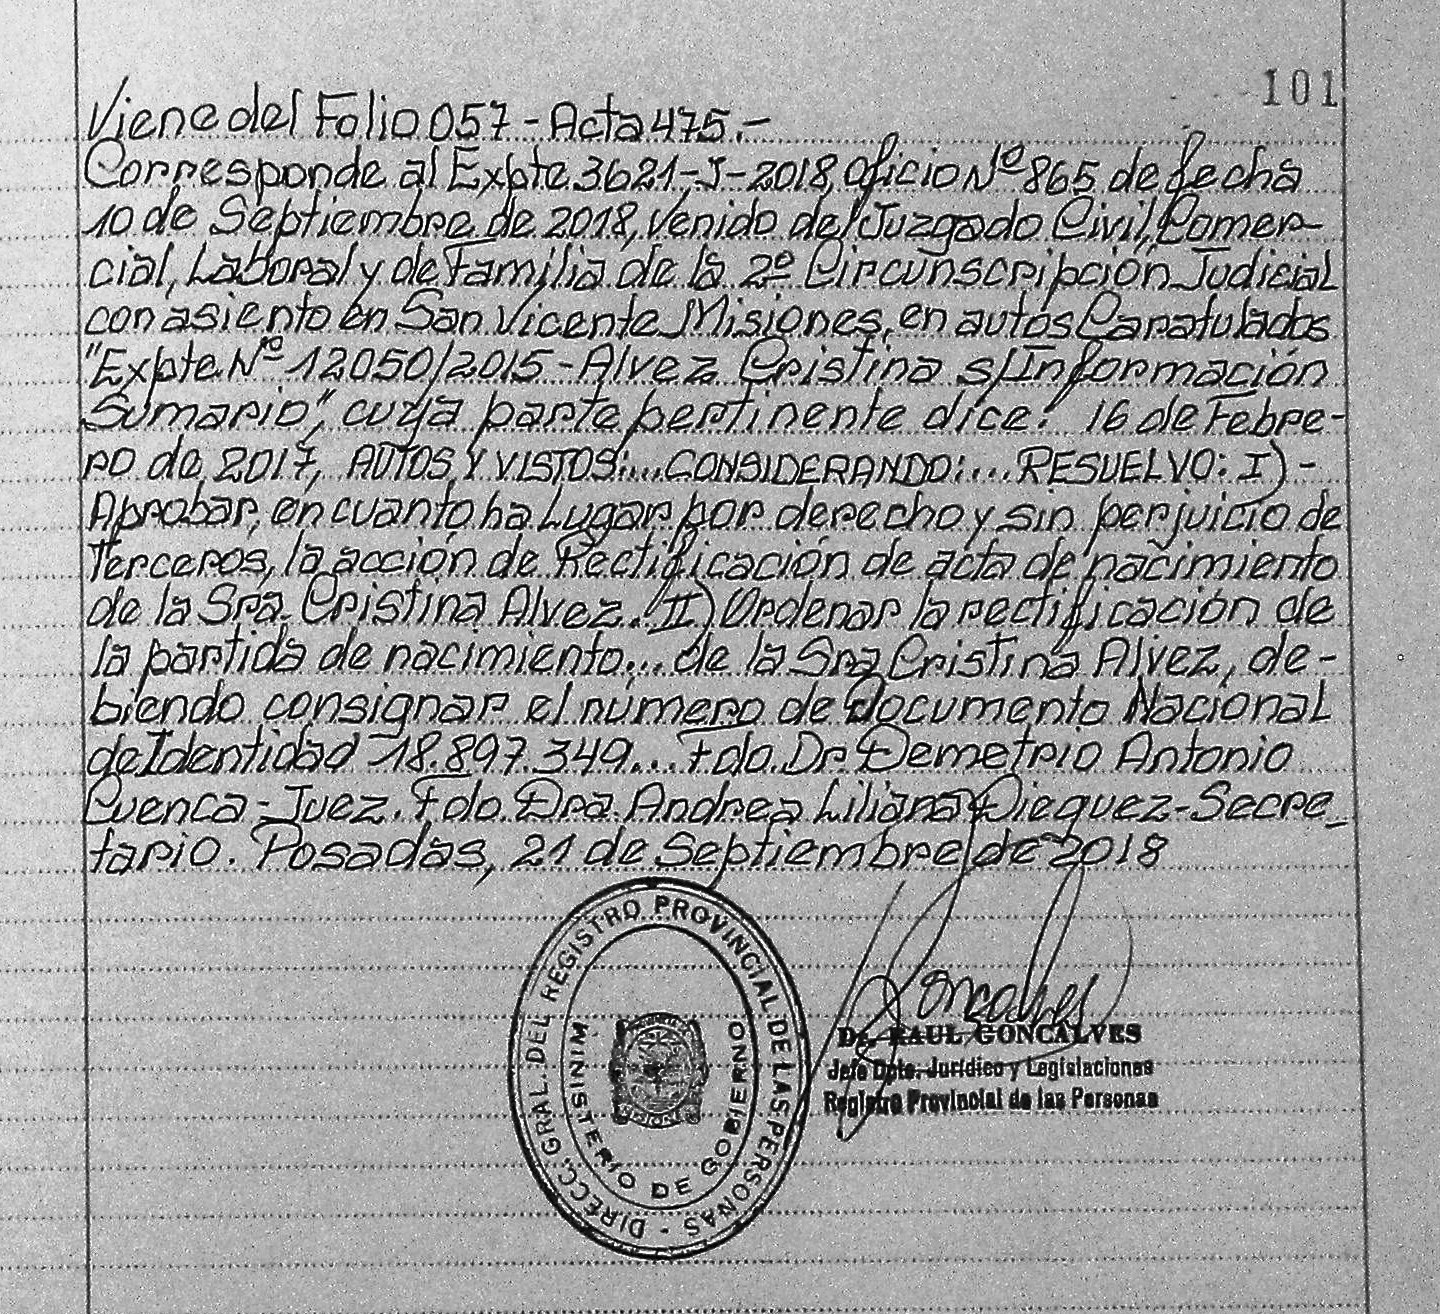 101
Viene del Folio 057 - Acta 475.-
Corresponde al Expte 3621-J-2018, oficio Nº 865 de fecha
10 de Septiembre de 2018, venido del Juzgado Civil, Comer-
cial, Laboral y de Familia de la 2º Circunscripción Judicial
con asiento en San Vicente Misiones, en autos Caratulados
"Expte Nº 12050/2015 - Alvez Cristina s/Información
Sumario", cuya parte pertinente dice: 16 de Febre-
ro de 2017, AUTOS Y VISTOS:...CONSIDERANDO:... RESUELVO: I) -
Aprobar, en cuanto ha Lugar por derecho y sin perjuicio de
Terceros, la acción de Rectificación de acta de nacimiento
de la Sra. Cristina Alvez. II) Ordenar la rectificación de
la partida de nacimiento... de la Sra Cristina Alvez, de-
biendo consignar el número de Documento Nacional
de Identidad 18.897.349... Fdo. Dr. Demetrio Antonio
Cuenca - Juez. Fdo. Dra. Andrea Liliana Dieguez - Secre_
tario. Posadas, 21 de Septiembre de 2018
DIRECC. GRAL. DEL REGISTRO PROVINCIAL DE LAS PERSONAS -
MINISTERIO DE GOBIERNO
Goncalves
Dr. RAUL GONCALVES
Jefe Dpto. Jurídico y Legislaciones
Registro Provincial de las Personas